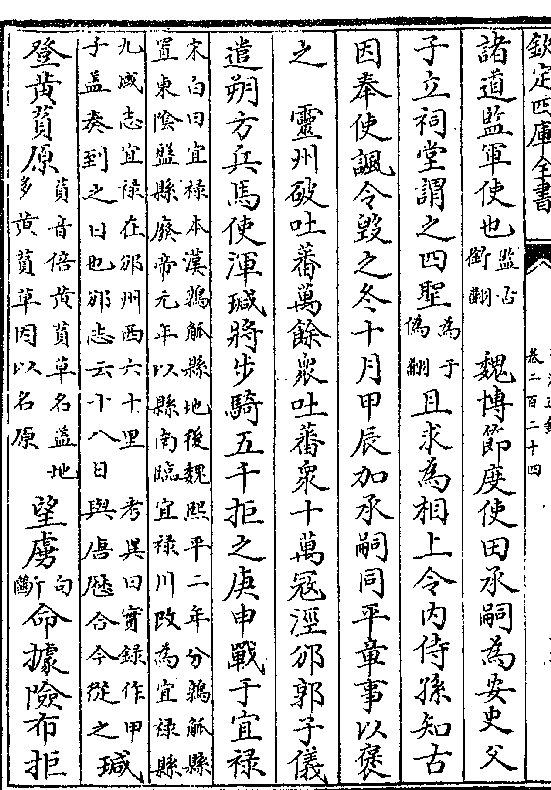 欽定四庫全書
卷二百二十四
諸道監軍使也監古銜翻 魏博節度使田承嗣為安史父
子立祠堂謂之四聖為于偽翻且求為相上令内侍孫知古
因奉使諷令毁之冬十月甲辰加承嗣同平章事以褒
之 靈州破吐蕃萬餘衆吐蕃衆十萬冦涇邠郭子儀
遣朔方兵馬使渾瑊將步騎五千拒之庚申戰于宜禄
宋白曰宜禄本漢鶉觚縣地後魏熙平二年分鶉觚縣
置東陰盤縣廢帝元年以縣南臨宜禄川改為宜禄縣
九域志宜禄在邠州西六十里 考異曰實録作甲
子蓋奏到之日也邠志云十八日與唐歷合今從之瑊
登黄萯原萯音倍黄萯草名蓋地多黄萯草因以名原望虜句斷命據險布拒